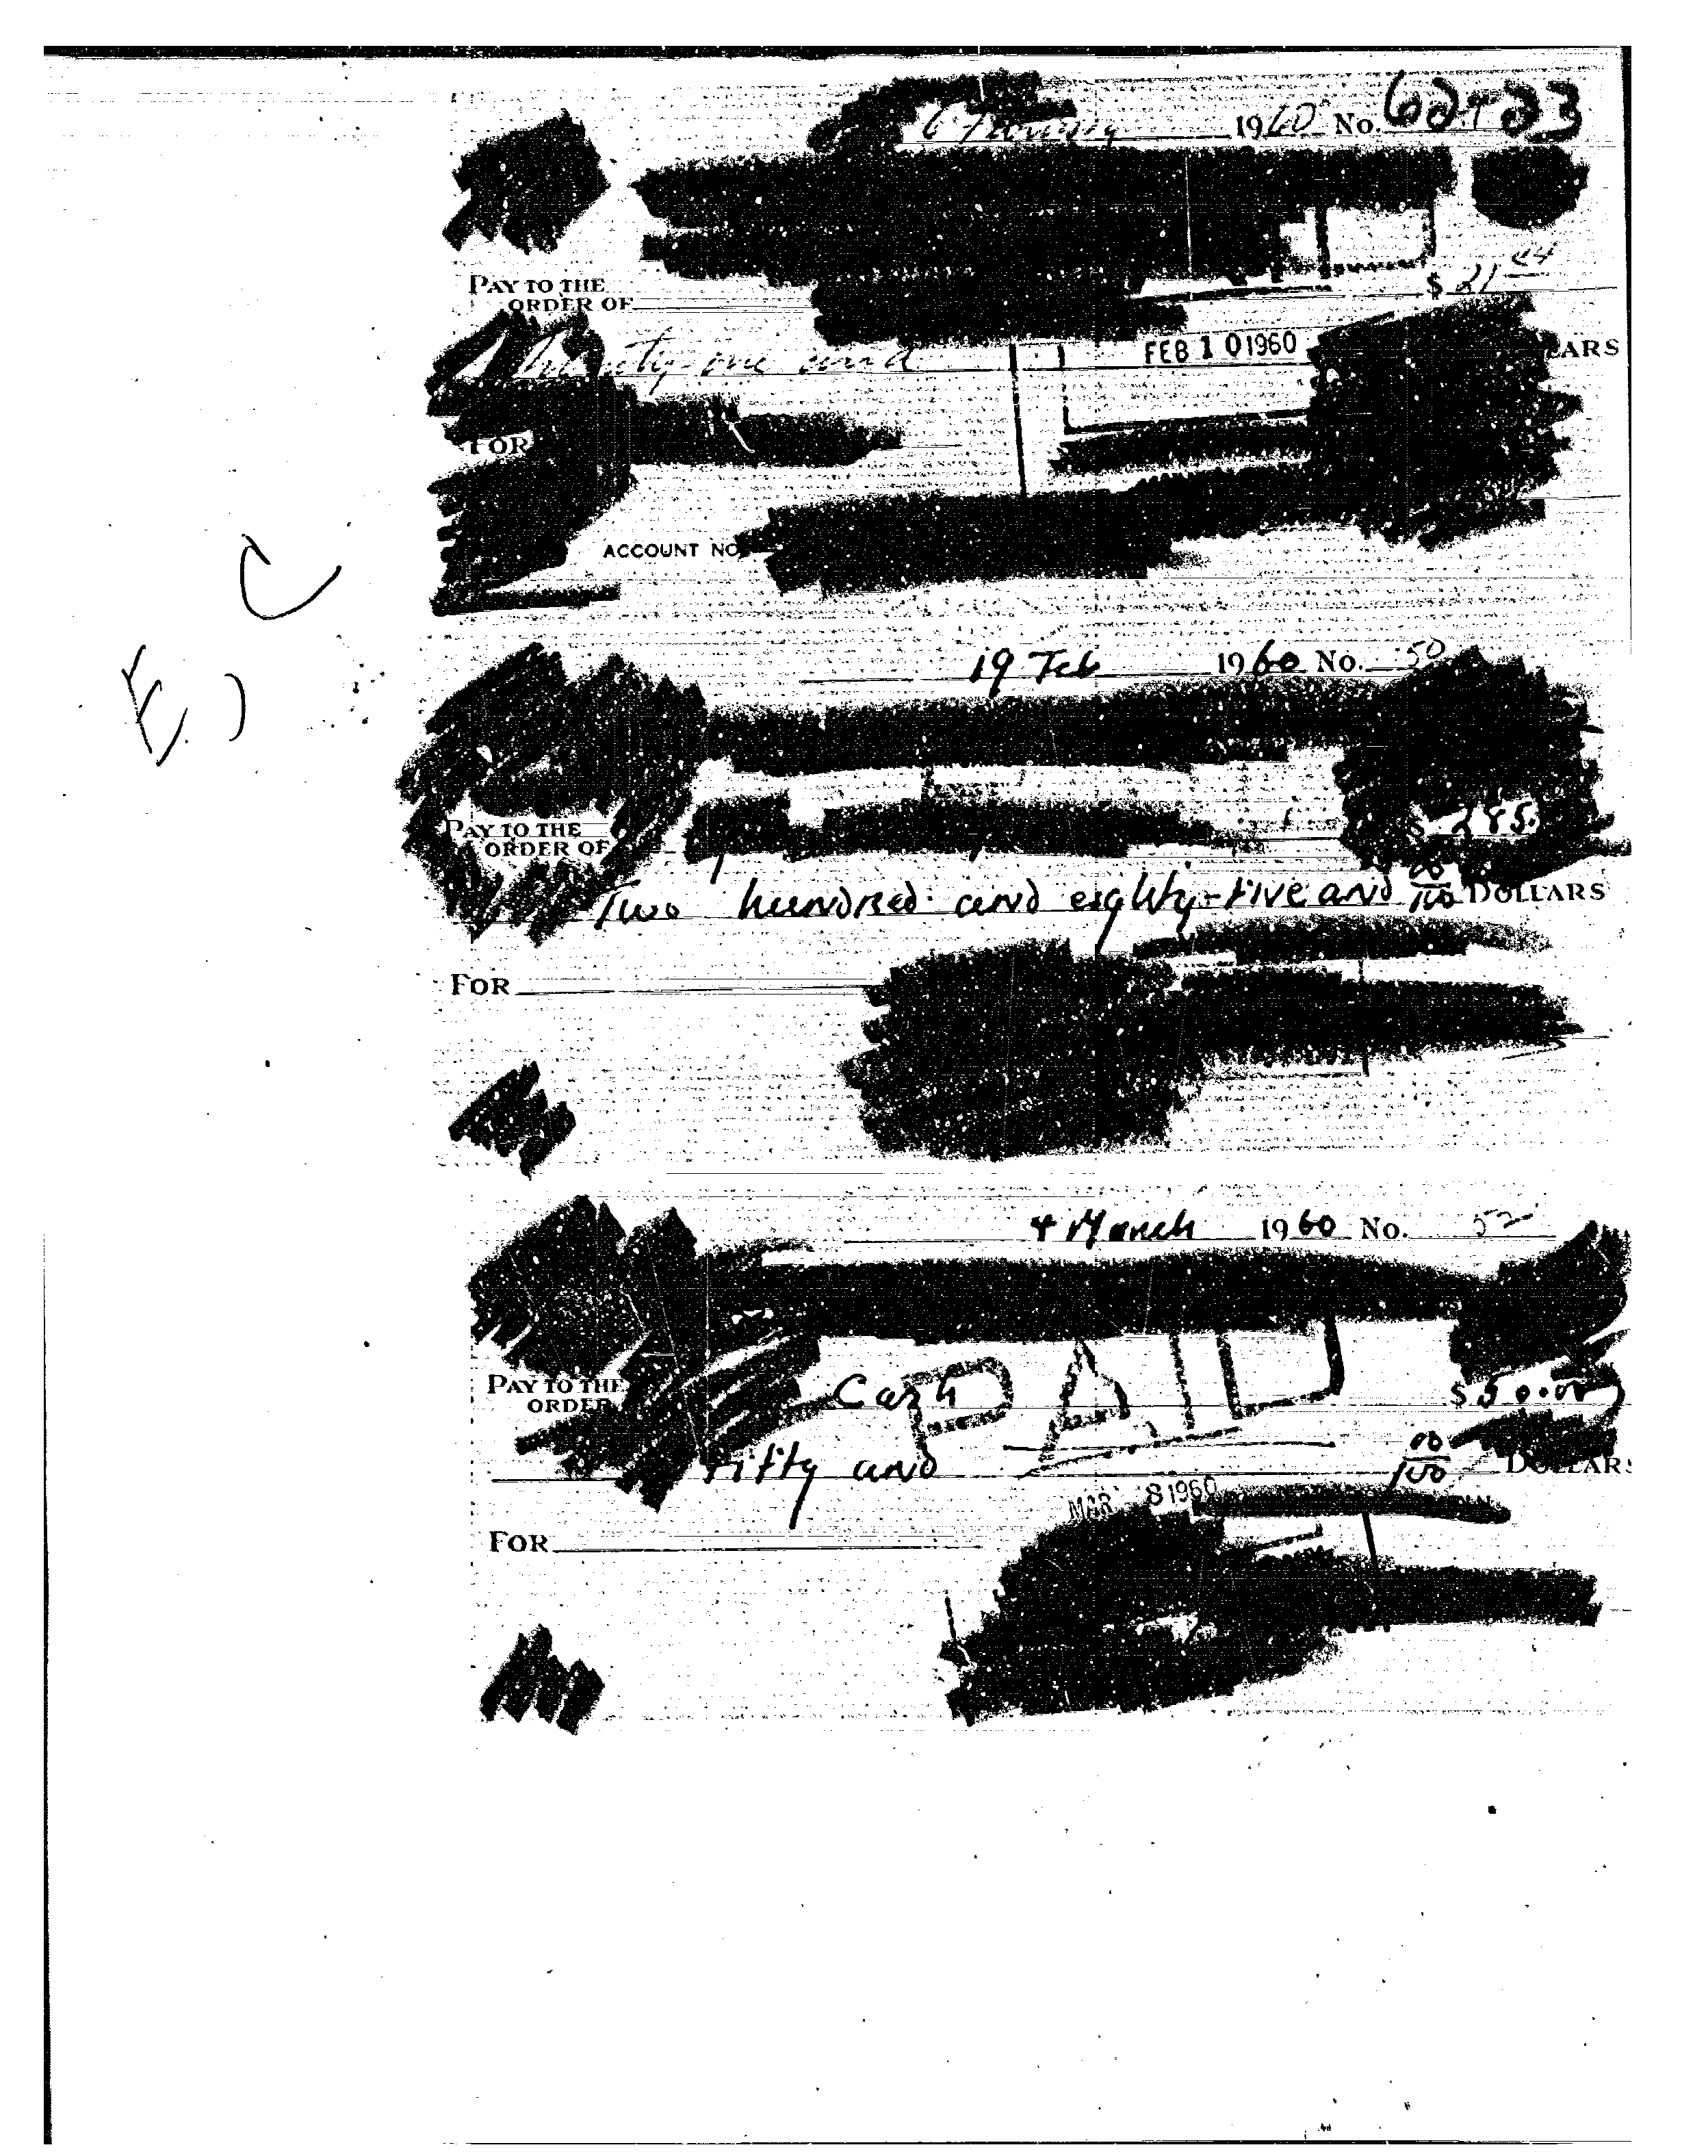 6 February 1960 No.
PAY TO THE
ORDER OF $ 21 44
Twenty-one and FEB 10 1960 ARS
FOR
ACCOUNT NO
E, C
19 Feb 1960 No. 50
PAY TO THE
ORDER OF $ 285.
Two hundred and eighty-five and 00/100 DOLLARS
FOR
4 March 1960 No. 52
PAID
PAY TO THE
ORDER Cash $ 50.00
Fifty and 00/100 DOLLARS
MAR 8 1960
FOR